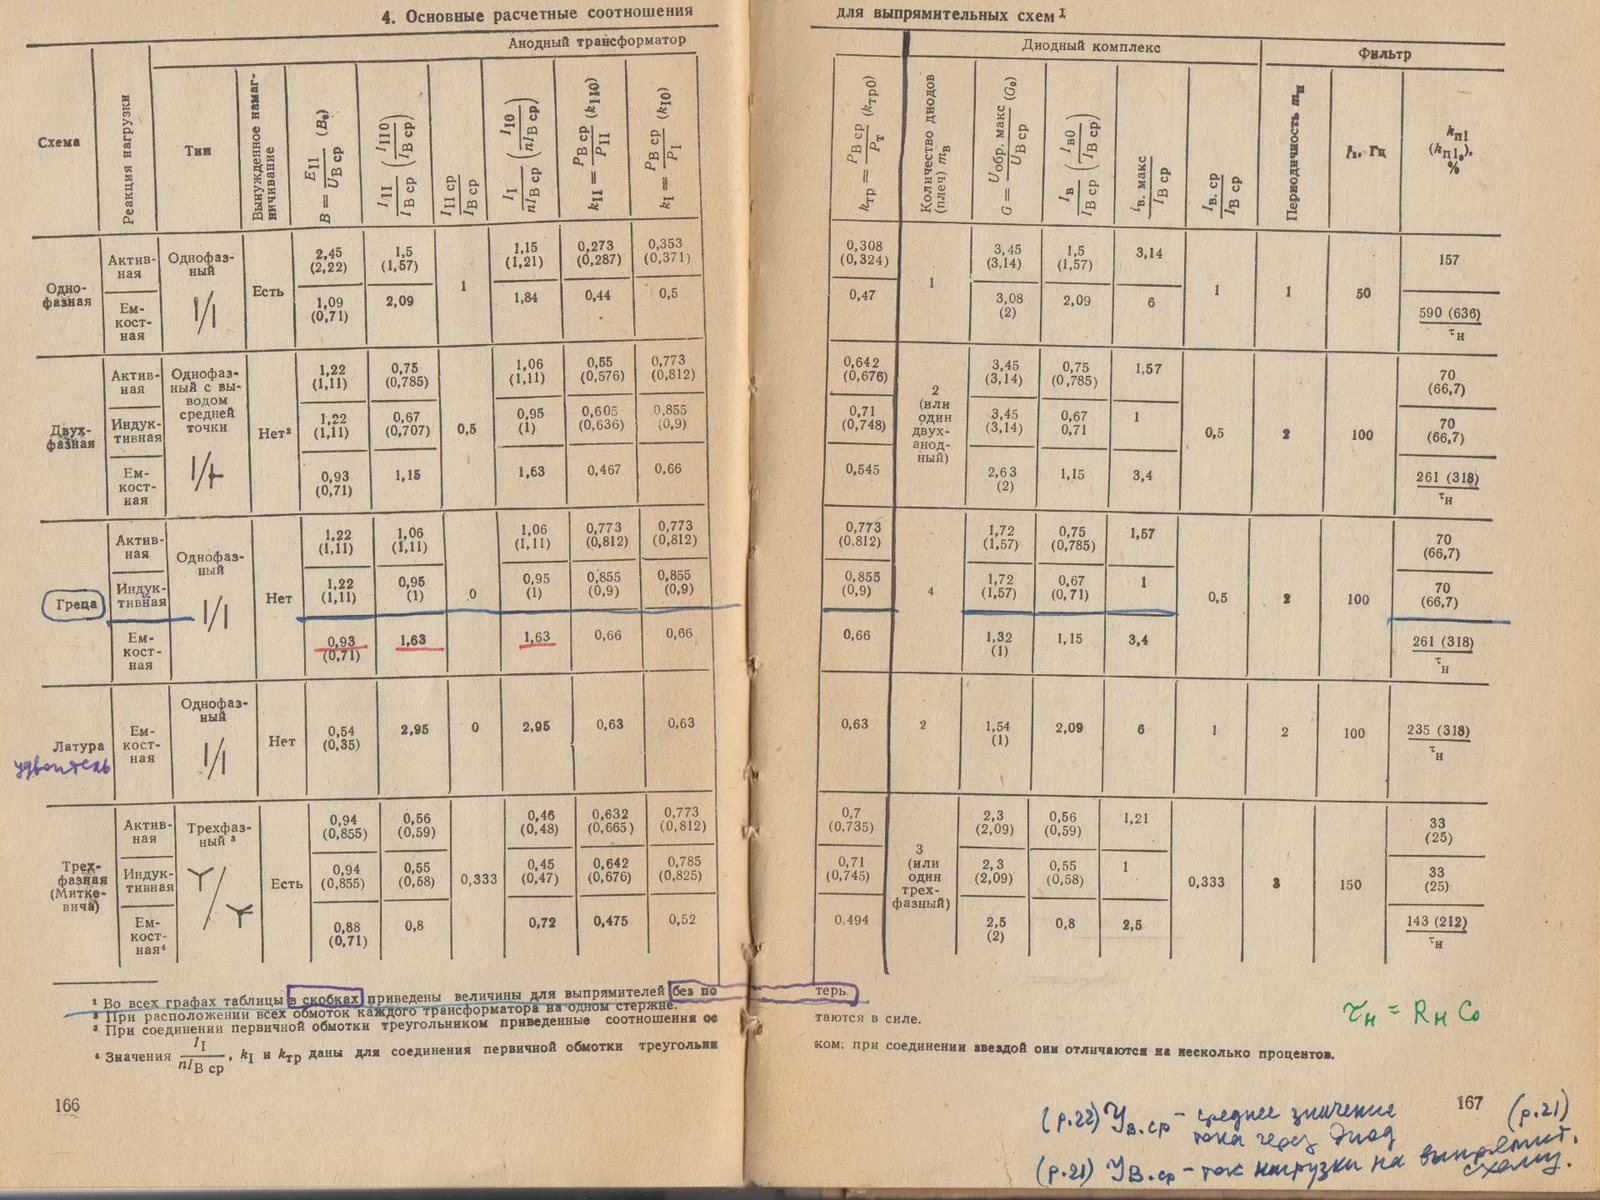 4. Основные расчетные соотношения для выпрямительных схем ¹
Схема
Реакция нагрузки
Анодный трансформатор
Тип
Вынужденное намаг-
ничивание
B = E II / U В ср (B₀)
I II / I В ср (I II0 / I В ср)
I II ср / I В ср
I I / nI В ср (I I0 / nI В ср)
k II = P В ср / P II (k II0)
k I = P В ср / P I (k I0)
k тр = P В ср / P т (k тр0)
Диодный комплекс
Количество диодов
(плеч) m в
G = U обр. макс / U В ср (G₀)
I в / I В ср (I в0 / I В ср)
i в. макс / I В ср
I в. ср / I В ср
Фильтр
Периодичность m н
f₁, Гц
k п1
(k п1₀),
%
Одно-
фазная
Актив-
ная
Однофаз-
ный
Есть
2,45
(2,22)
1,5
(1,57)
1
1,15
(1,21)
0,273
(0,287)
0,353
(0,371)
0,308
(0,324)
1
3,45
(3,14)
1,5
(1,57)
3,14
1
1
50
157
Ем-
кост-
ная
1,09
(0,71)
2,09
1,84
0,44
0,5
0,47
3,08
(2)
2,09
6
590 (636)
τ н
Двух-
фазная
Актив-
ная
Однофаз-
ный с вы-
водом
средней
точки
Нет²
1,22
(1,11)
0,75
(0,785)
0,5
1,06
(1,11)
0,55
(0,576)
0,773
(0,812)
0,642
(0,676)
2
(или
один
двух-
анод-
ный)
3,45
(3,14)
0,75
(0,785)
1,57
0,5
2
100
70
(66,7)
Индук-
тивная
1,22
(1,11)
0,67
(0,707)
0,95
(1)
0,605
(0,636)
0,855
(0,9)
0,71
(0,748)
3,45
(3,14)
0,67
0,71
1
70
(66,7)
Ем-
кост-
ная
0,93
(0,71)
1,15
1,63
0,467
0,66
0,545
2,63
(2)
1,15
3,4
261 (318)
τ н
Греца
Актив-
ная
Однофаз-
ный
Нет
1,22
(1,11)
1,06
(1,11)
0
1,06
(1,11)
0,773
(0,812)
0,773
(0,812)
0,773
(0,812)
4
1,72
(1,57)
0,75
(0,785)
1,57
0,5
2
100
70
(66,7)
Индук-
тивная
1,22
(1,11)
0,95
(1)
0,95
(1)
0,855
(0,9)
0,855
(0,9)
0,855
(0,9)
1,72
(1,57)
0,67
(0,71)
1
70
(66,7)
Ем-
кост-
ная
0,93
(0,71)
1,63
1,63
0,66
0,66
0,66
1,32
(1)
1,15
3,4
261 (318)
τ н
Латура
удвоитель
Ем-
кост-
ная
Однофаз-
ный
Нет
0,54
(0,35)
2,95
0
2,95
0,63
0,63
0,63
2
1,54
(1)
2,09
6
1
2
100
235 (318)
τ н
Трех-
фазная
(Митке-
вича)
Актив-
ная
Трехфаз-
ный ³
Есть
0,94
(0,855)
0,56
(0,59)
0,333
0,46
(0,48)
0,632
(0,665)
0,773
(0,812)
0,7
(0,735)
3
(или
один
трех-
фазный)
2,3
(2,09)
0,56
(0,59)
1,21
0,333
3
150
33
(25)
Индук-
тивная
0,94
(0,855)
0,55
(0,58)
0,45
(0,47)
0,642
(0,676)
0,785
(0,825)
0,71
(0,745)
2,3
(2,09)
0,55
(0,58)
1
33
(25)
Ем-
кост-
ная⁴
0,88
(0,71)
0,8
0,72
0,475
0,52
0,494
2,5
(2)
0,8
2,5
143 (212)
τ н
¹ Во всех графах таблицы в скобках приведены величины для выпрямителей без потерь.
² При расположении всех обмоток каждого трансформатора на одном стержне.
³ При соединении первичной обмотки треугольником приведенные соотношения остаются в силе.
⁴ Значения I I / nI В ср, k I и k тр даны для соединения первичной обмотки треугольником; при соединении звездой они отличаются на несколько процентов.
τ н = R н C₀
166
167
(р.22) У в.ср – среднее значение
тока через диод
(р.21)
(р.21) У В.ср – ток нагрузки на выпрямит.
схему.